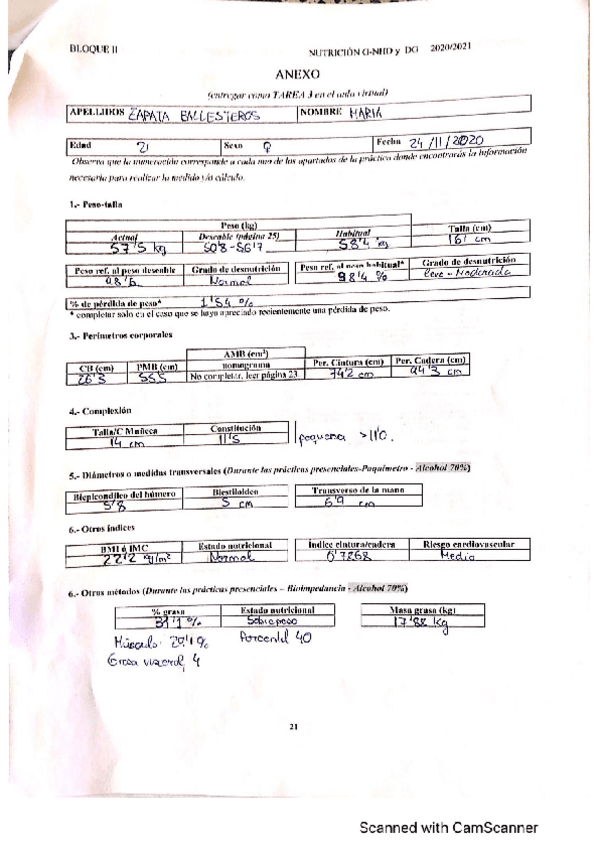 BLOQUE II NUTRICIÓN G-NHD y DG 2020/2021
ANEXO
(entregar como TAREA 3 en el aula virtual)
APELLIDOS ZAPATA BALLESTEROS NOMBRE MARÍA
Edad 21 Sexo ♀ Fecha 24/11/2020
Observa que la numeración corresponde a cada uno de los apartados de la práctica donde encontrarás la información
necesaria para realizar la medida y/o cálculo.
1.- Peso-talla
Peso (kg) Talla (cm)
Actual Deseable (página 25) Habitual
57'5 kg 50'8-56'7 58'4 kg 161 cm
Peso ref. al peso deseable Grado de desnutrición Peso ref. al peso habitual* Grado de desnutrición
98'6 Normal 98'4 % Leve - Moderada
% de pérdida de peso* 1'54 %
* completar solo en el caso que se haya apreciado recientemente una pérdida de peso.
3.- Perímetros corporales
CB (cm) PMB (cm) AMB (cm²) Per. Cintura (cm) Per. Cadera (cm)
nomograma
26'3 No completar, leer página 23 74'2 cm 94'3 cm
4.- Complexión
Talla/C Muñeca Constitución
14 cm 11'5 pequeña >11'0.
5.- Diámetros o medidas transversales (Durante las prácticas presenciales-Paquímetro - Alcohol 70%)
Biepicondíleo del húmero Biestiloideo Transverso de la mano
5'8 5 cm 6'9 cm
6.- Otros índices
BMI ó IMC Estado nutricional Índice cintura/cadera Riesgo cardiovascular
22'2 kg/m² Normal 0'7868 Medio
6.- Otros métodos (Durante las prácticas presenciales – Bioimpedancia - Alcohol 70%)
% grasa Estado nutricional Masa grasa (kg)
31'1 % Sobrepeso 17'88 kg
Músculo: 29'1 % Percentil 40
Grasa visceral, 4
21
Scanned with CamScanner